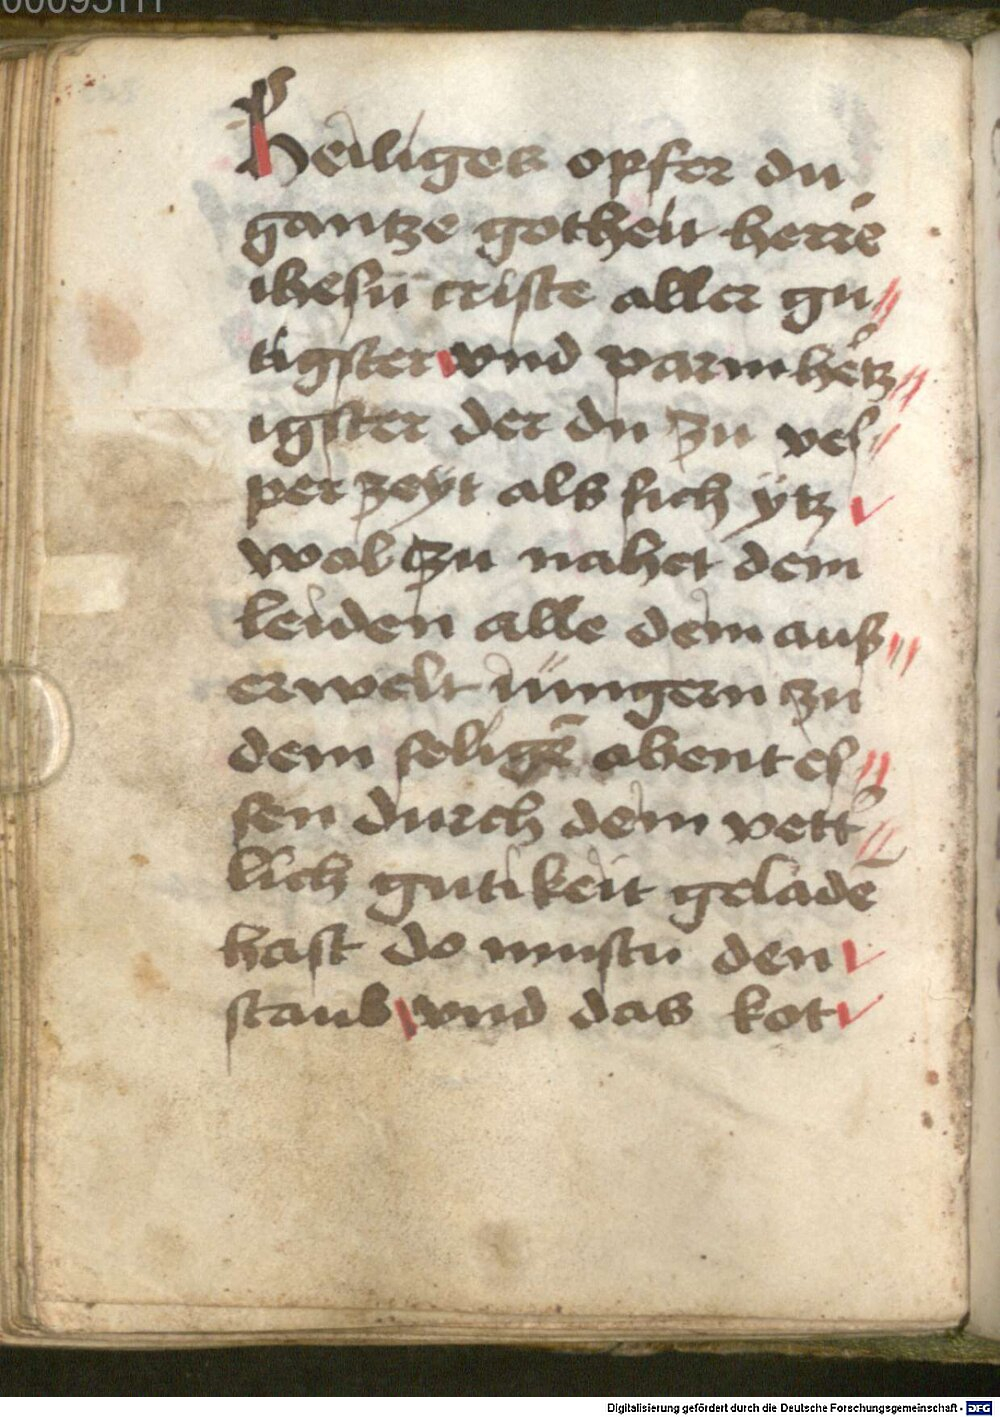 Heiliges opfer du
gantze gotheit herre
ihesu criste aller gu
tigster vnd parmhetz
igster der du zu ves
per zeyt als sich ÿtz
wol zu nahet dem
leiden alle dem auß
erwelt iüngern zu
dem seligē abent es
sen durch dein vett
lich gutikeit geladē
hast do mustu den
staub vnd das kot
Digitalisierung gefördert durch die Deutsche Forschungsgemeinschaft - DFG